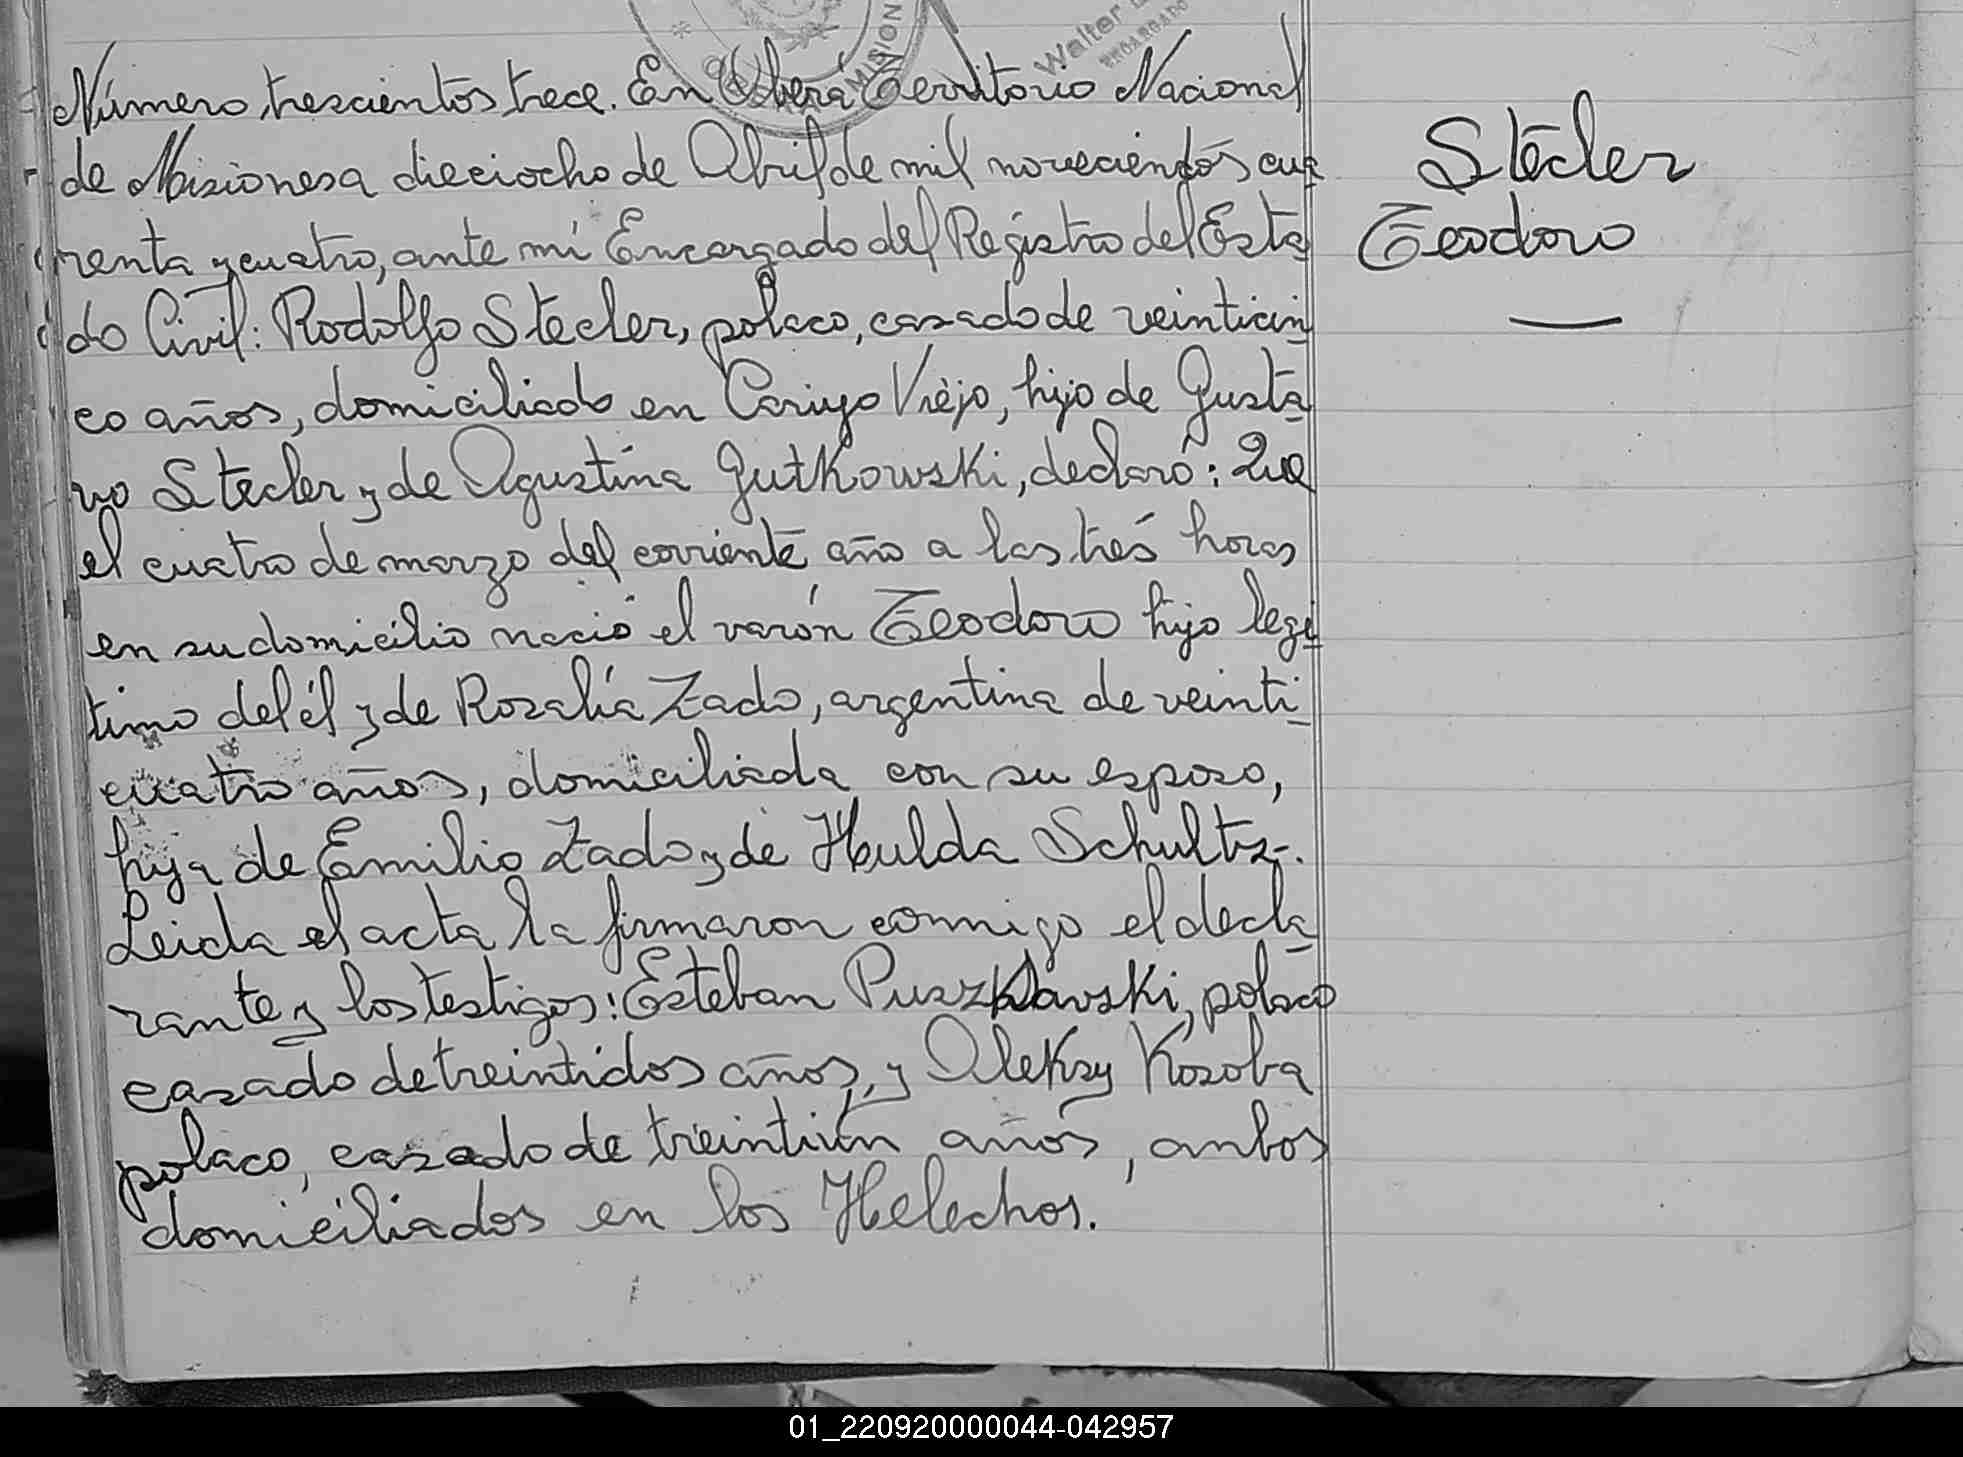 Número trescientos trece. En Oberá Territorio Nacional
de Misiones a dieciocho de Abril de mil novecientos cua
renta y cuatro, ante mí Encargado del Registro del Esta
do Civil: Rodolfo Stecler, polaco, casado de veinticin
co años, domiciliado en Cariyo Viejo, hijo de Gusta
vo Stecler y de Agustina Gutkowski, declaró: Que
el cuatro de marzo del corriente año a las trés horas
en su domicilio nació el varón Teodoro hijo legi
timo del él y de Rosalía Zado, argentina de veinti
cuatro años, domiciliada con su esposo,
hija de Emilio Zado y de Hulda Schultz-.
Leida el acta la firmaron conmigo el decla
rante y los testigos: Esteban polaco
casado de treintidos años, y Aleksy Kosoba
polaco, casado de treintiún años, ambos
domiciliados en los Helechos.
Stecler
Teodoro
MISION
Walter
ENCARGADO
01_220920000044-042957